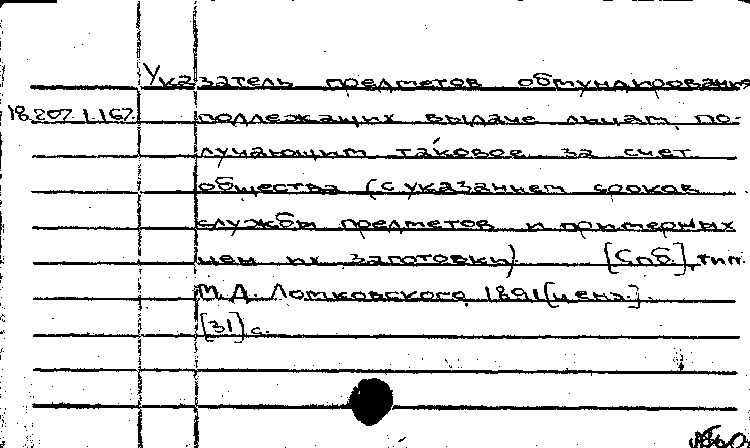 Указатель предметов обмундирования
18.207.1.167. подлежащих выдаче лицам, по-
лучающим таковое за счет
общества (с указанием сроков
службы предметов и примерных
цен их заготовки) [Спб.], тип.
М.Д. Ломковского, 1891 [ценз.].
[31] с.